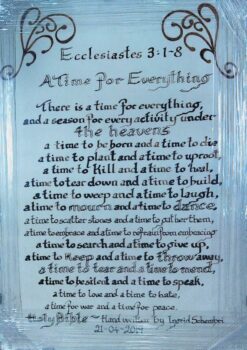 Ecclesiastes 3:1-8
A Time for Everything
There is a time for everything,
and a season for every activity under
the heavens
a time to be born and a time to die
a time to plant and a time to uproot,
a time to kill and a time to heal,
a time to tear down and a time to build,
a time to weep and a time to laugh,
a time to mourn and a time to dance,
a time to scatter stones and a time to gather them,
a time to embrace and a time to refrain from embracing
a time to search and a time to give up,
a time to keep and a time to throw away,
a time to tear and a time to mend
a time to be silent and a time to speak,
a time to love and a time to hate,
a time for war and a time for peace.
Holy Bible ~ Hand written by Ingrid Schembri
21-04-2014